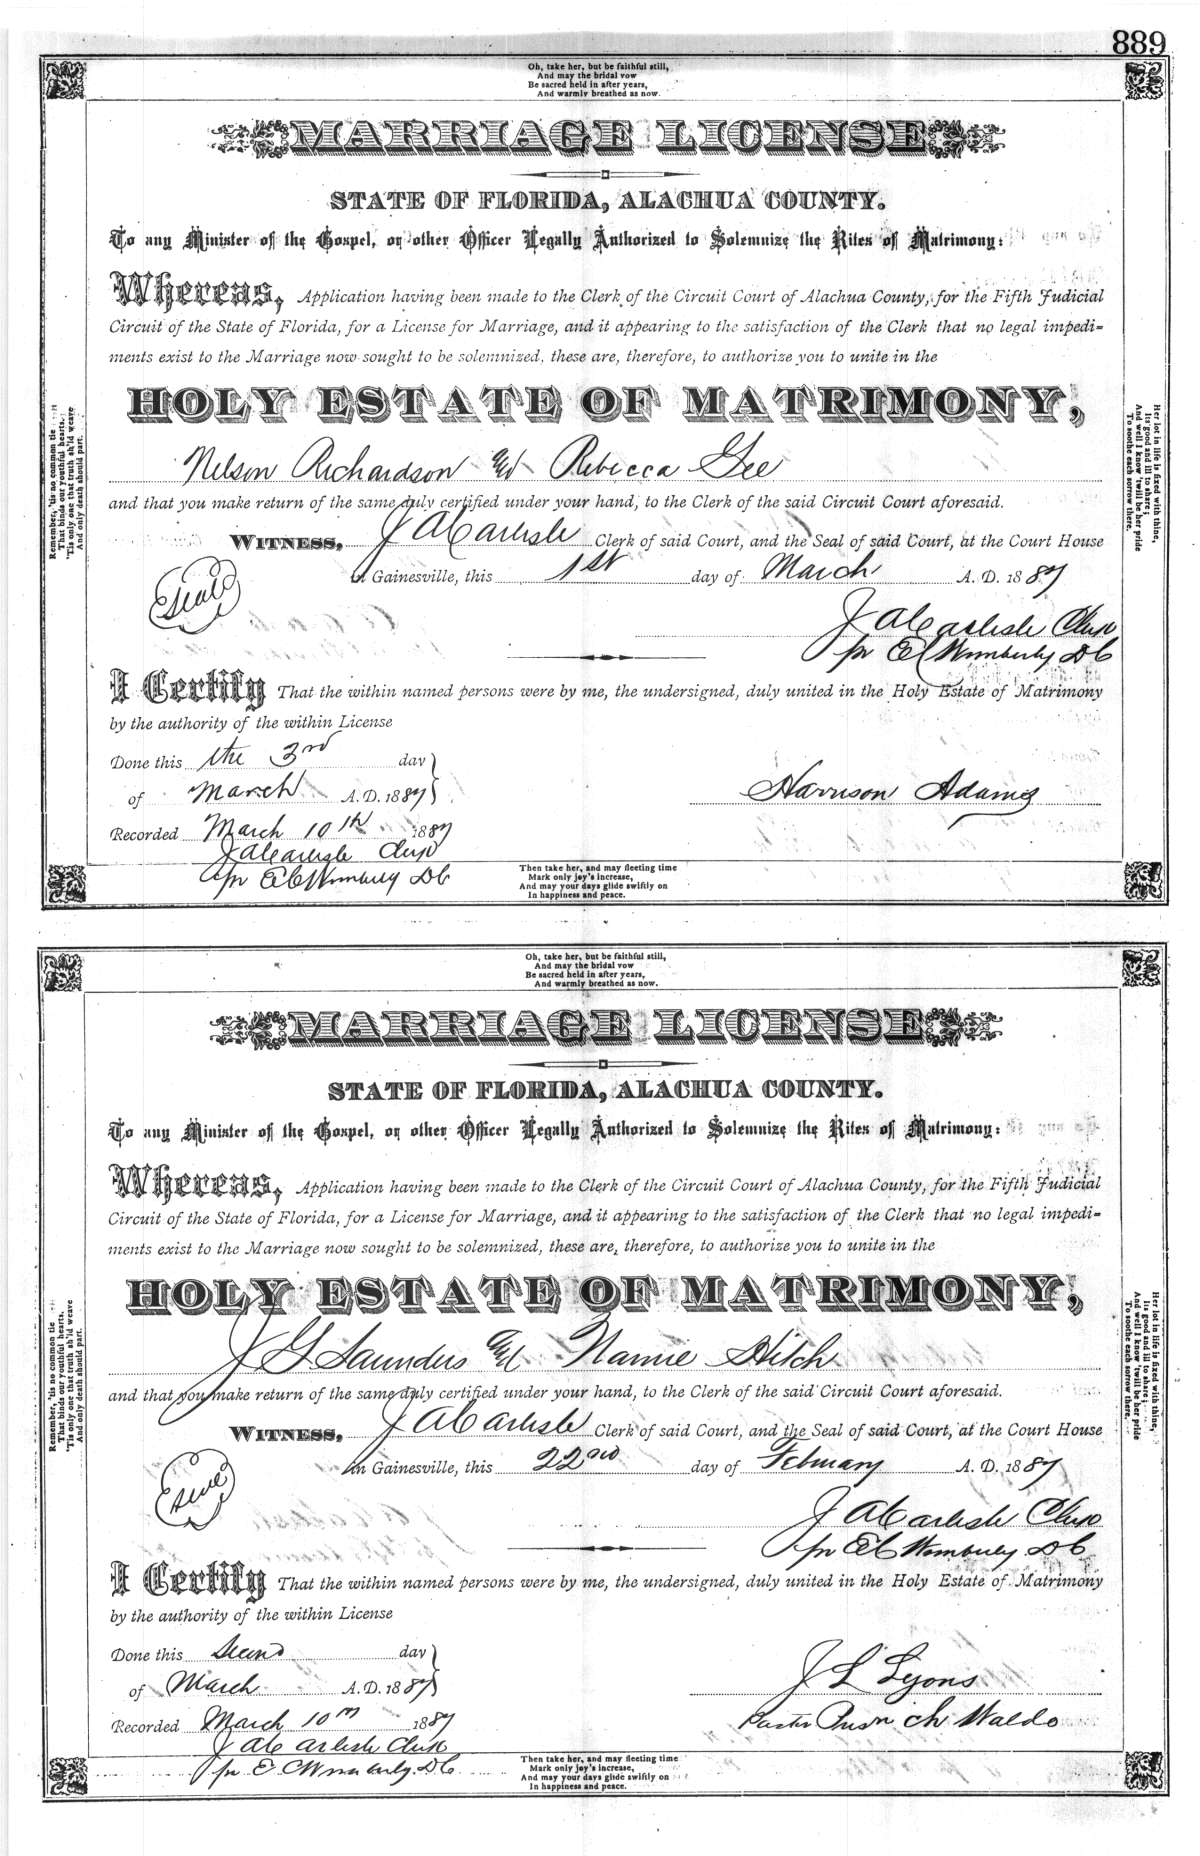 889
Oh, take her, but be faithful still,
And may the bridal vow
Be sacred held in after years,
And warmly breathed as now.
MARRIAGE LICENSE
STATE OF FLORIDA, ALACHUA COUNTY.
To any Minister of the Gospel, or other Officer Legally Authorized to Solemnize the Rites of Matrimony:
Whereas, Application having been made to the Clerk of the Circuit Court of Alachua County, for the Fifth Judicial
Circuit of the State of Florida, for a License for Marriage, and it appearing to the satisfaction of the Clerk that no legal impedi-
ments exist to the Marriage now sought to be solemnized, these are, therefore, to authorize you to unite in the
HOLY ESTATE OF MATRIMONY,
Nelson Richardson and Rebecca Gee
and that you make return of the same duly certified under your hand, to the Clerk of the said Circuit Court aforesaid.
WITNESS, J A Carlisle Clerk of said Court, and the Seal of said Court, at the Court House
in Gainesville, this 1st day of March A. D. 1887
Seal
J A Carlisle Clerk
pr E C Wimberly D C
I Certify That the within named persons were by me, the undersigned, duly united in the Holy Estate of Matrimony
by the authority of the within License
Done this the 3rd day
of March A. D. 1887
Harrison Adams
Recorded March 10th 1887
J A Carlisle Clerk
pr E C Wimberly D C
Then take her, and may fleeting time
Mark only joy's increase,
And may your days glide swiftly on
In happiness and peace.
Remember, 'tis no common tie
That binds our youthful hearts,
'Tis only one that truth sh'ld weave
And only death should part.
Her lot in life is fixed with thine,
Its good and ill to share;
And well I know 'twill be her pride
To soothe each sorrow there.
Oh, take her, but be faithful still,
And may the bridal vow
Be sacred held in after years,
And warmly breathed as now.
MARRIAGE LICENSE
STATE OF FLORIDA, ALACHUA COUNTY.
To any Minister of the Gospel, or other Officer Legally Authorized to Solemnize the Rites of Matrimony:
Whereas, Application having been made to the Clerk of the Circuit Court of Alachua County, for the Fifth Judicial
Circuit of the State of Florida, for a License for Marriage, and it appearing to the satisfaction of the Clerk that no legal impedi-
ments exist to the Marriage now sought to be solemnized, these are, therefore, to authorize you to unite in the
HOLY ESTATE OF MATRIMONY,
J G Saunders and Nannie Hitch
and that you make return of the same duly certified under your hand, to the Clerk of the said Circuit Court aforesaid.
WITNESS, J A Carlisle Clerk of said Court, and the Seal of said Court, at the Court House
in Gainesville, this 22nd day of February A. D. 1887
Seal
J A Carlisle Clerk
pr E C Wimberly D C
I Certify That the within named persons were by me, the undersigned, duly united in the Holy Estate of Matrimony
by the authority of the within License
Done this Second day
of March A. D. 1887
J L Lyons
Pastor Pres'n Ch Waldo
Recorded March 10th 1887
J A Carlisle Clerk
pr E C Wimberly D C
Then take her, and may fleeting time
Mark only joy's increase,
And may your days glide swiftly on
In happiness and peace.
Remember, 'tis no common tie
That binds our youthful hearts.
'Tis only one that truth sh'ld weave
And only death should part.
Her lot in life is fixed with thine,
Its good and ill to share;
And well I know 'twill be her pride
To soothe each sorrow there.